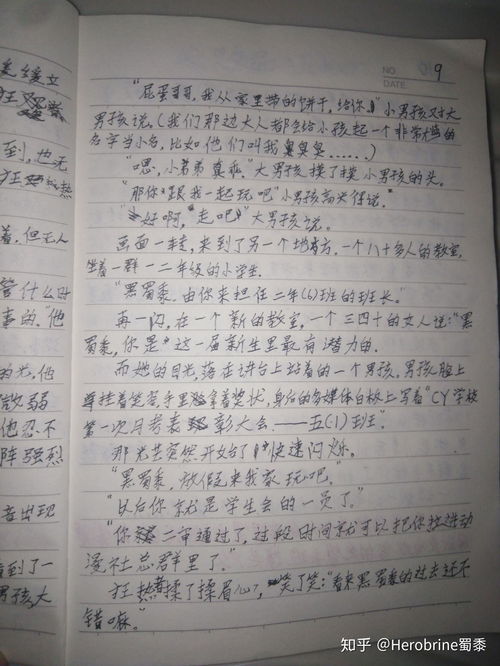 美缓立
狂
NO. 9
DATE
"屁蛋哥哥,我从家里带的饼干,给你。"小男孩对大
男孩说。(我们那边大人都会给小孩起一个非常的
到,也无
名字当小名,比如他们叫我臭臭臭……)
狂 热
"嗯,小弟弟真乖。"大男孩摸了摸小男孩的头。
"那你跟我一起玩吧"小男孩高兴得说。
"好啊,走吧"大男孩说。
着,但无人
画面一转,来到了另一个地方,一个八十多人的教室,
坐着一群一二年级的小学生.
管什么时
"黑蜀黍,由你来担任二年(6)班的班长。"
事的."他
再一闪,在一个新的教室,一个三四十的女人说:"黑
蜀黍,你是这一届新生里最有潜力的.
的光,他
而她的目光,落在讲台上站着的一个男孩,男孩脸上
微弱
挂着笑容手里拿着奖状,身后的多媒体白板上写着"CY学校
他忍不
第一次月考表彰大会——五(1)班".
阵强烈
那光芒突然开始了快速闪烁。
"黑蜀黍,放假来我家玩吧。"
音出现
"以后你就是学生会的一员了。"
"你二审通过了,过段时间就可以把你拉进动
漫社总群里了。"
看到了一
狂热揉了揉眉心,笑了笑:"看来黑蜀黍的过去还不
男孩,大
错嘛。"
知乎 @Herobrine蜀黍